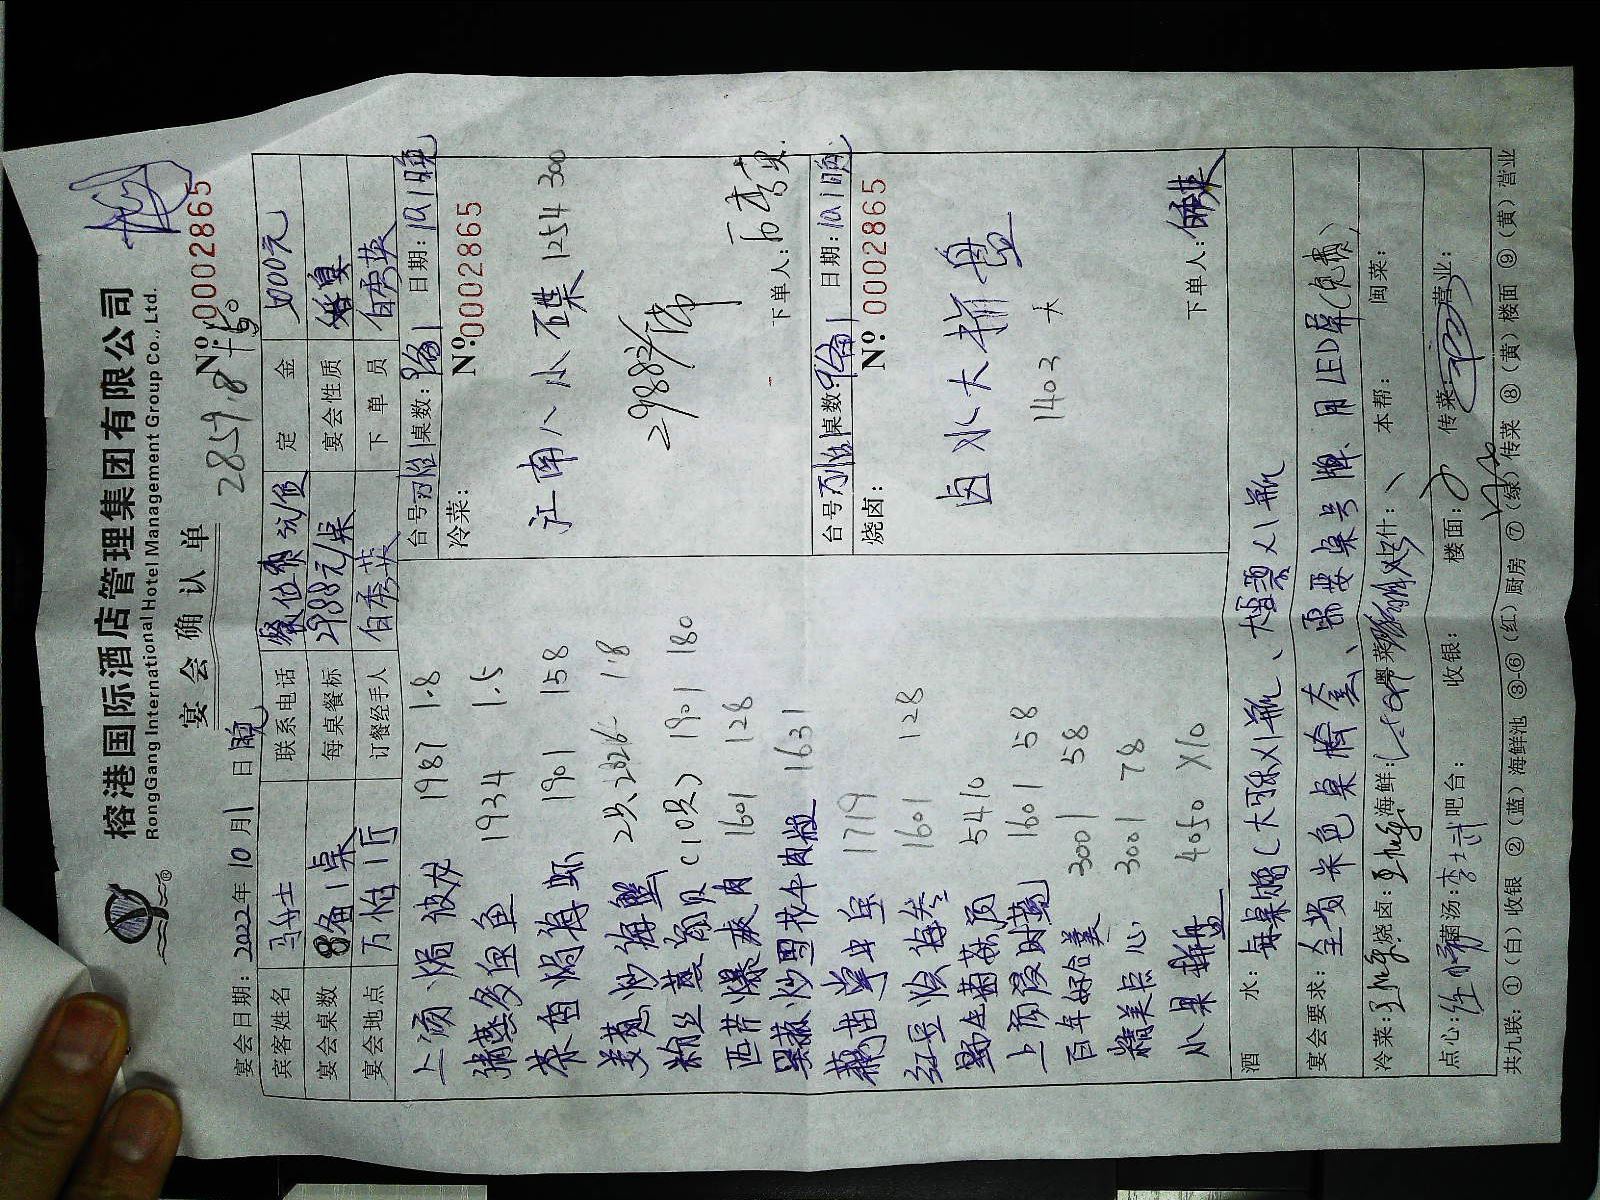 榕港国际酒店管理集团有限公司
RongGang International Hotel Management Group Co., Ltd.
宴会确认单
2859.8
宴会日期：2022年10月1日晚 Nº 0002865
宾客姓名 马女士 联系电话 定金
宴会桌数 8备1桌 每桌餐标 2988元/桌 宴会性质 婚宴
宴会地点 万怡1厅 订餐经手人 白秀英 下单员 白秀英
上汤焗波龙 1987 1.8
清蒸多宝鱼 1934 1.5
茶香焗海虾 1901 158
姜葱炒海蟹 2只 1.8
粉丝蒸扇贝(10只) 1901 180
西芹爆爽肉 1601 128
黑椒炒雪花牛肉粒 1631
1719
红豆烩海参 1601 128
野生菌菇 5410
上汤浸时蔬 1601 58
百年好合羹 3001 58
精美点心 3001 78
水果拼盘 4050 X10
台号 万怡1 桌数：8备1 日期：10.1晚
冷菜： Nº 0002865
江南八小碟 1254 300
2988/席
下单人：
台号 万怡1 桌数：8备1 日期：10.1晚
烧卤： Nº 0002865
卤水大拼盘
1403 大
下单人：
酒水：每桌赠(大可乐X1瓶、大雪碧X1瓶
宴会要求：全场米色桌椅套、需要桌号牌、用LED屏(免费)
冷菜： 烧卤： 海鲜： 粤菜： 上什： 本帮： 闽菜：
点心： 菌汤： 吧台： 收银： 楼面： 传菜： 营业：
共九联：①(白)收银 ②(蓝)海鲜池 ③-⑥(红)厨房 ⑦(绿)传菜 ⑧(黄)楼面 ⑨(黄)营业